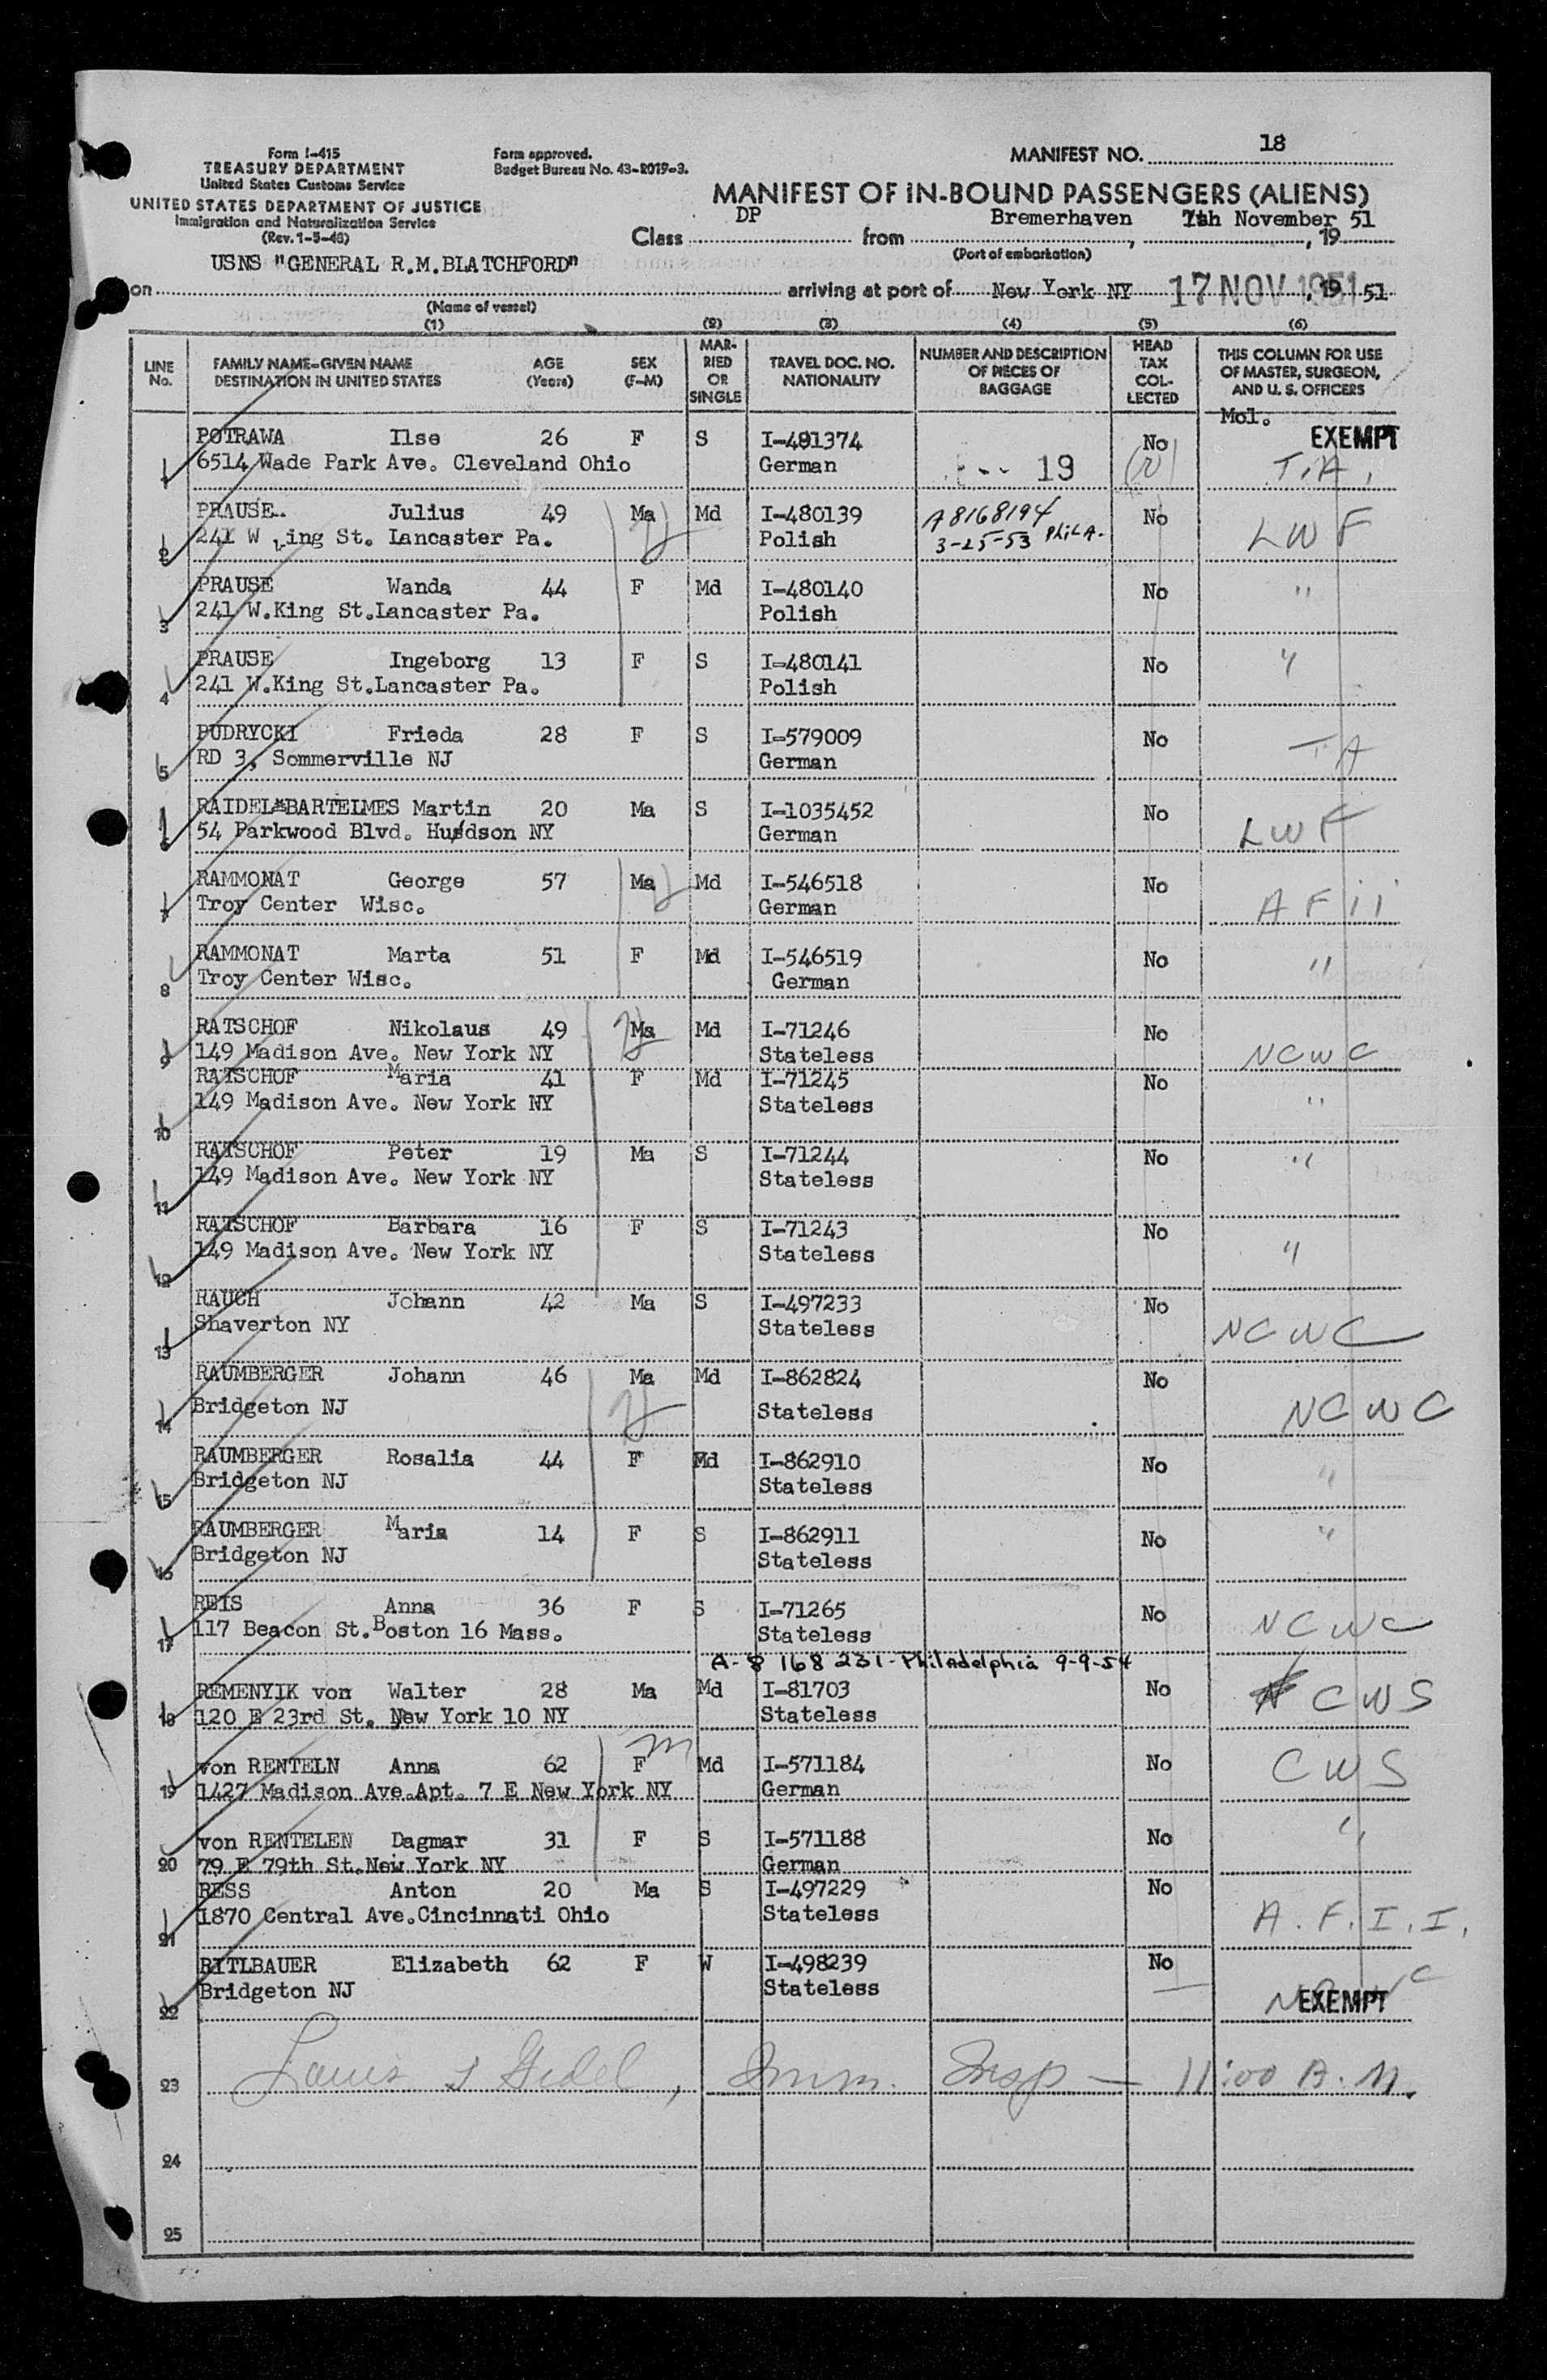 Form I-415
TREASURY DEPARTMENT
United States Customs Service
UNITED STATES DEPARTMENT OF JUSTICE
Immigration and Naturalization Service
(Rev. 1-5-48)
Form approved.
Budget Bureau No. 43-R019-3.
MANIFEST NO. 18
MANIFEST OF IN-BOUND PASSENGERS (ALIENS)
Class DP from Bremerhaven, 7th November, 19 51
(Port of embarkation)
USNS "GENERAL R.M.BLATCHFORD"
on arriving at port of New York NY 17 NOV 1951, 19 51
(Name of vessel)
(1) (2) (3) (4) (5) (6)
LINE No. FAMILY NAME-GIVEN NAME DESTINATION IN UNITED STATES AGE (Years) SEX (F-M) MARRIED OR SINGLE TRAVEL DOC. NO. NATIONALITY NUMBER AND DESCRIPTION OF PIECES OF BAGGAGE HEAD TAX COLLECTED THIS COLUMN FOR USE OF MASTER, SURGEON, AND U. S. OFFICERS
Mol.
POTRAWA Ilse 26 F S I-481374 No EXEMPT
1 6514 Wade Park Ave. Cleveland Ohio German 19 T.A.
PRAUSE.. Julius 49 Ma Md I-480139 A8168194 No LWF
2 241 W ing St. Lancaster Pa. Polish 3-25-53 PhilA.
PRAUSE Wanda 44 F Md I-480140 No "
3 241 W.King St.Lancaster Pa. Polish
PRAUSE Ingeborg 13 F S I-480141 No "
4 241 W.King St.Lancaster Pa. Polish
PUDRYCKI Frieda 28 F S I-579009 No TA
5 RD 3, Sommerville NJ German
RAIDEL-BARTELMES Martin 20 Ma S I-1035452 No LWF
6 54 Parkwood Blvd. Hudson NY German
RAMMONAT George 57 Ma Md I-546518 No AFii
7 Troy Center Wisc. German
RAMMONAT Marta 51 F Md I-546519 No "
8 Troy Center Wisc. German
RATSCHOF Nikolaus 49 Ma Md I-71246 No NCWC
9 149 Madison Ave. New York NY Stateless
RATSCHOF Maria 41 F Md I-71245 No "
149 Madison Ave. New York NY Stateless
10
RATSCHOF Peter 19 Ma S I-71244 No "
11 149 Madison Ave. New York NY Stateless
RATSCHOF Barbara 16 F S I-71243 No "
12 149 Madison Ave. New York NY Stateless
RAUCH Johann 42 Ma S I-497233 No NCWC
13 Shaverton NY Stateless
RAUMBERGER Johann 46 Ma Md I-862824 No NCWC
14 Bridgeton NJ Stateless
RAUMBERGER Rosalia 44 F Md I-862910 No "
15 Bridgeton NJ Stateless
RAUMBERGER Maria 14 F S I-862911 No "
16 Bridgeton NJ Stateless
REIS Anna 36 F S I-71265 No NCWC
17 117 Beacon St.Boston 16 Mass. Stateless
A-8 168 231-Philadelphia 9-9-54
REMENYIK von Walter 28 Ma Md I-81703 No CWS
18 120 E 23rd St. New York 10 NY Stateless
von RENTELN Anna 62 F Md I-571184 No CWS
19 1427 Madison Ave.Apt. 7 E New York NY German
von RENTELEN Dagmar 31 F S I-571188 No "
20 79 E 79th St.New York NY German
RESS Anton 20 Ma S I-497229 No A.F.I.I.
21 1870 Central Ave.Cincinnati Ohio Stateless
RITLBAUER Elizabeth 62 F W I-498239 No
22 Bridgeton NJ Stateless EXEMPT
23 Imm. Insp - 11:00 A.M.
24
25